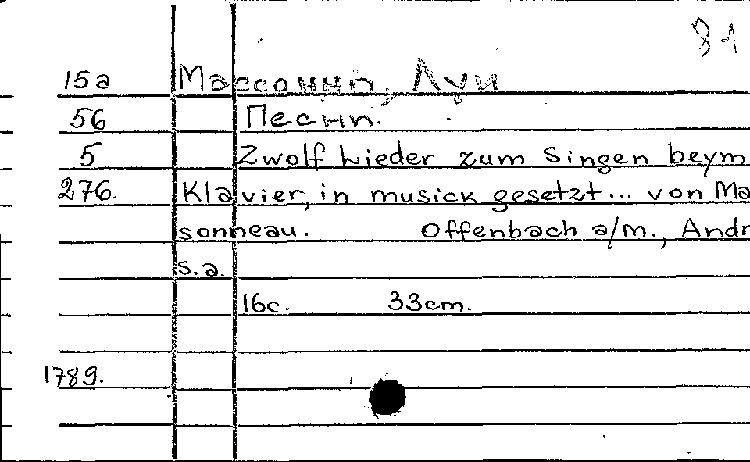 81
15а Массонно, Луи
56 Песни.
5 Zwolf Lieder zum Singen beym
276. Klavier, in musick gesetzt... von Ma
sonneau. Offenbach a/m., Andr
s.a.
16с. 33cm.
1789.